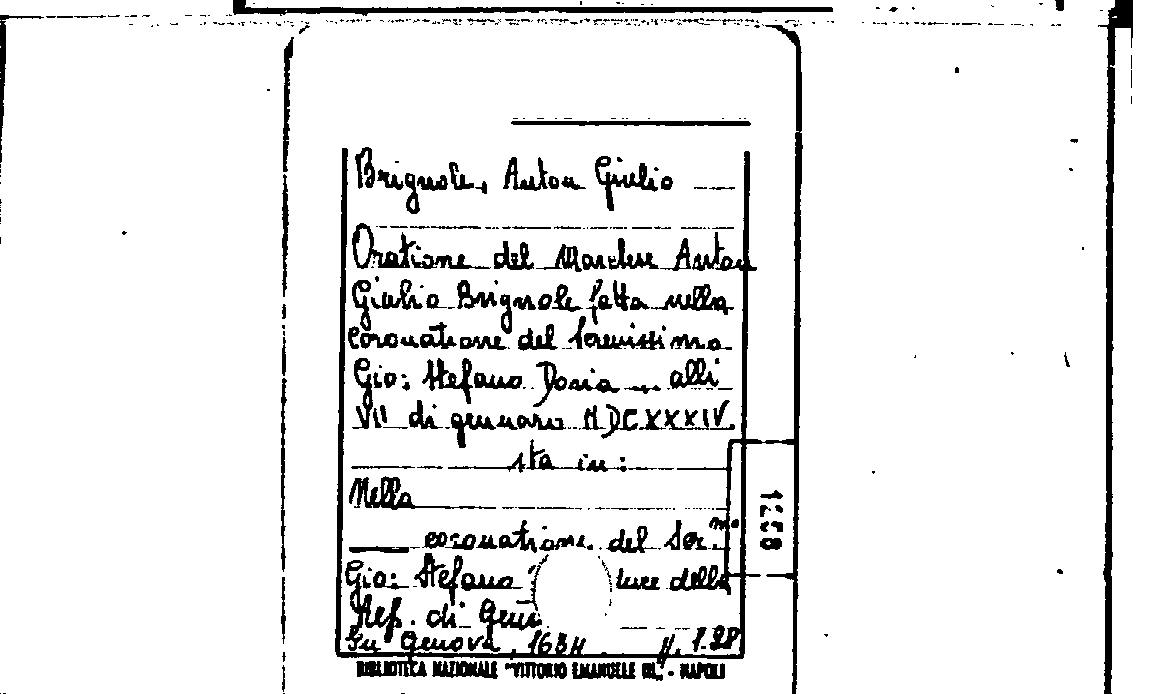 Brignole, Anton Giulio
Oratione del Marchese Anton
Giulio Brignole fatta nella
coronatione del Serenissimo
Gio: Stefano Doria ... alli
VII di gennaro MDCXXXIV.
sta in:
Nella
coronatione del Ser.mo
Gio: Stefano duce della
Rep. di Gen
In Genova, 1634 pp. 1-28
BIBLIOTECA NAZIONALE "VITTORIO EMANUELE III" - NAPOLI